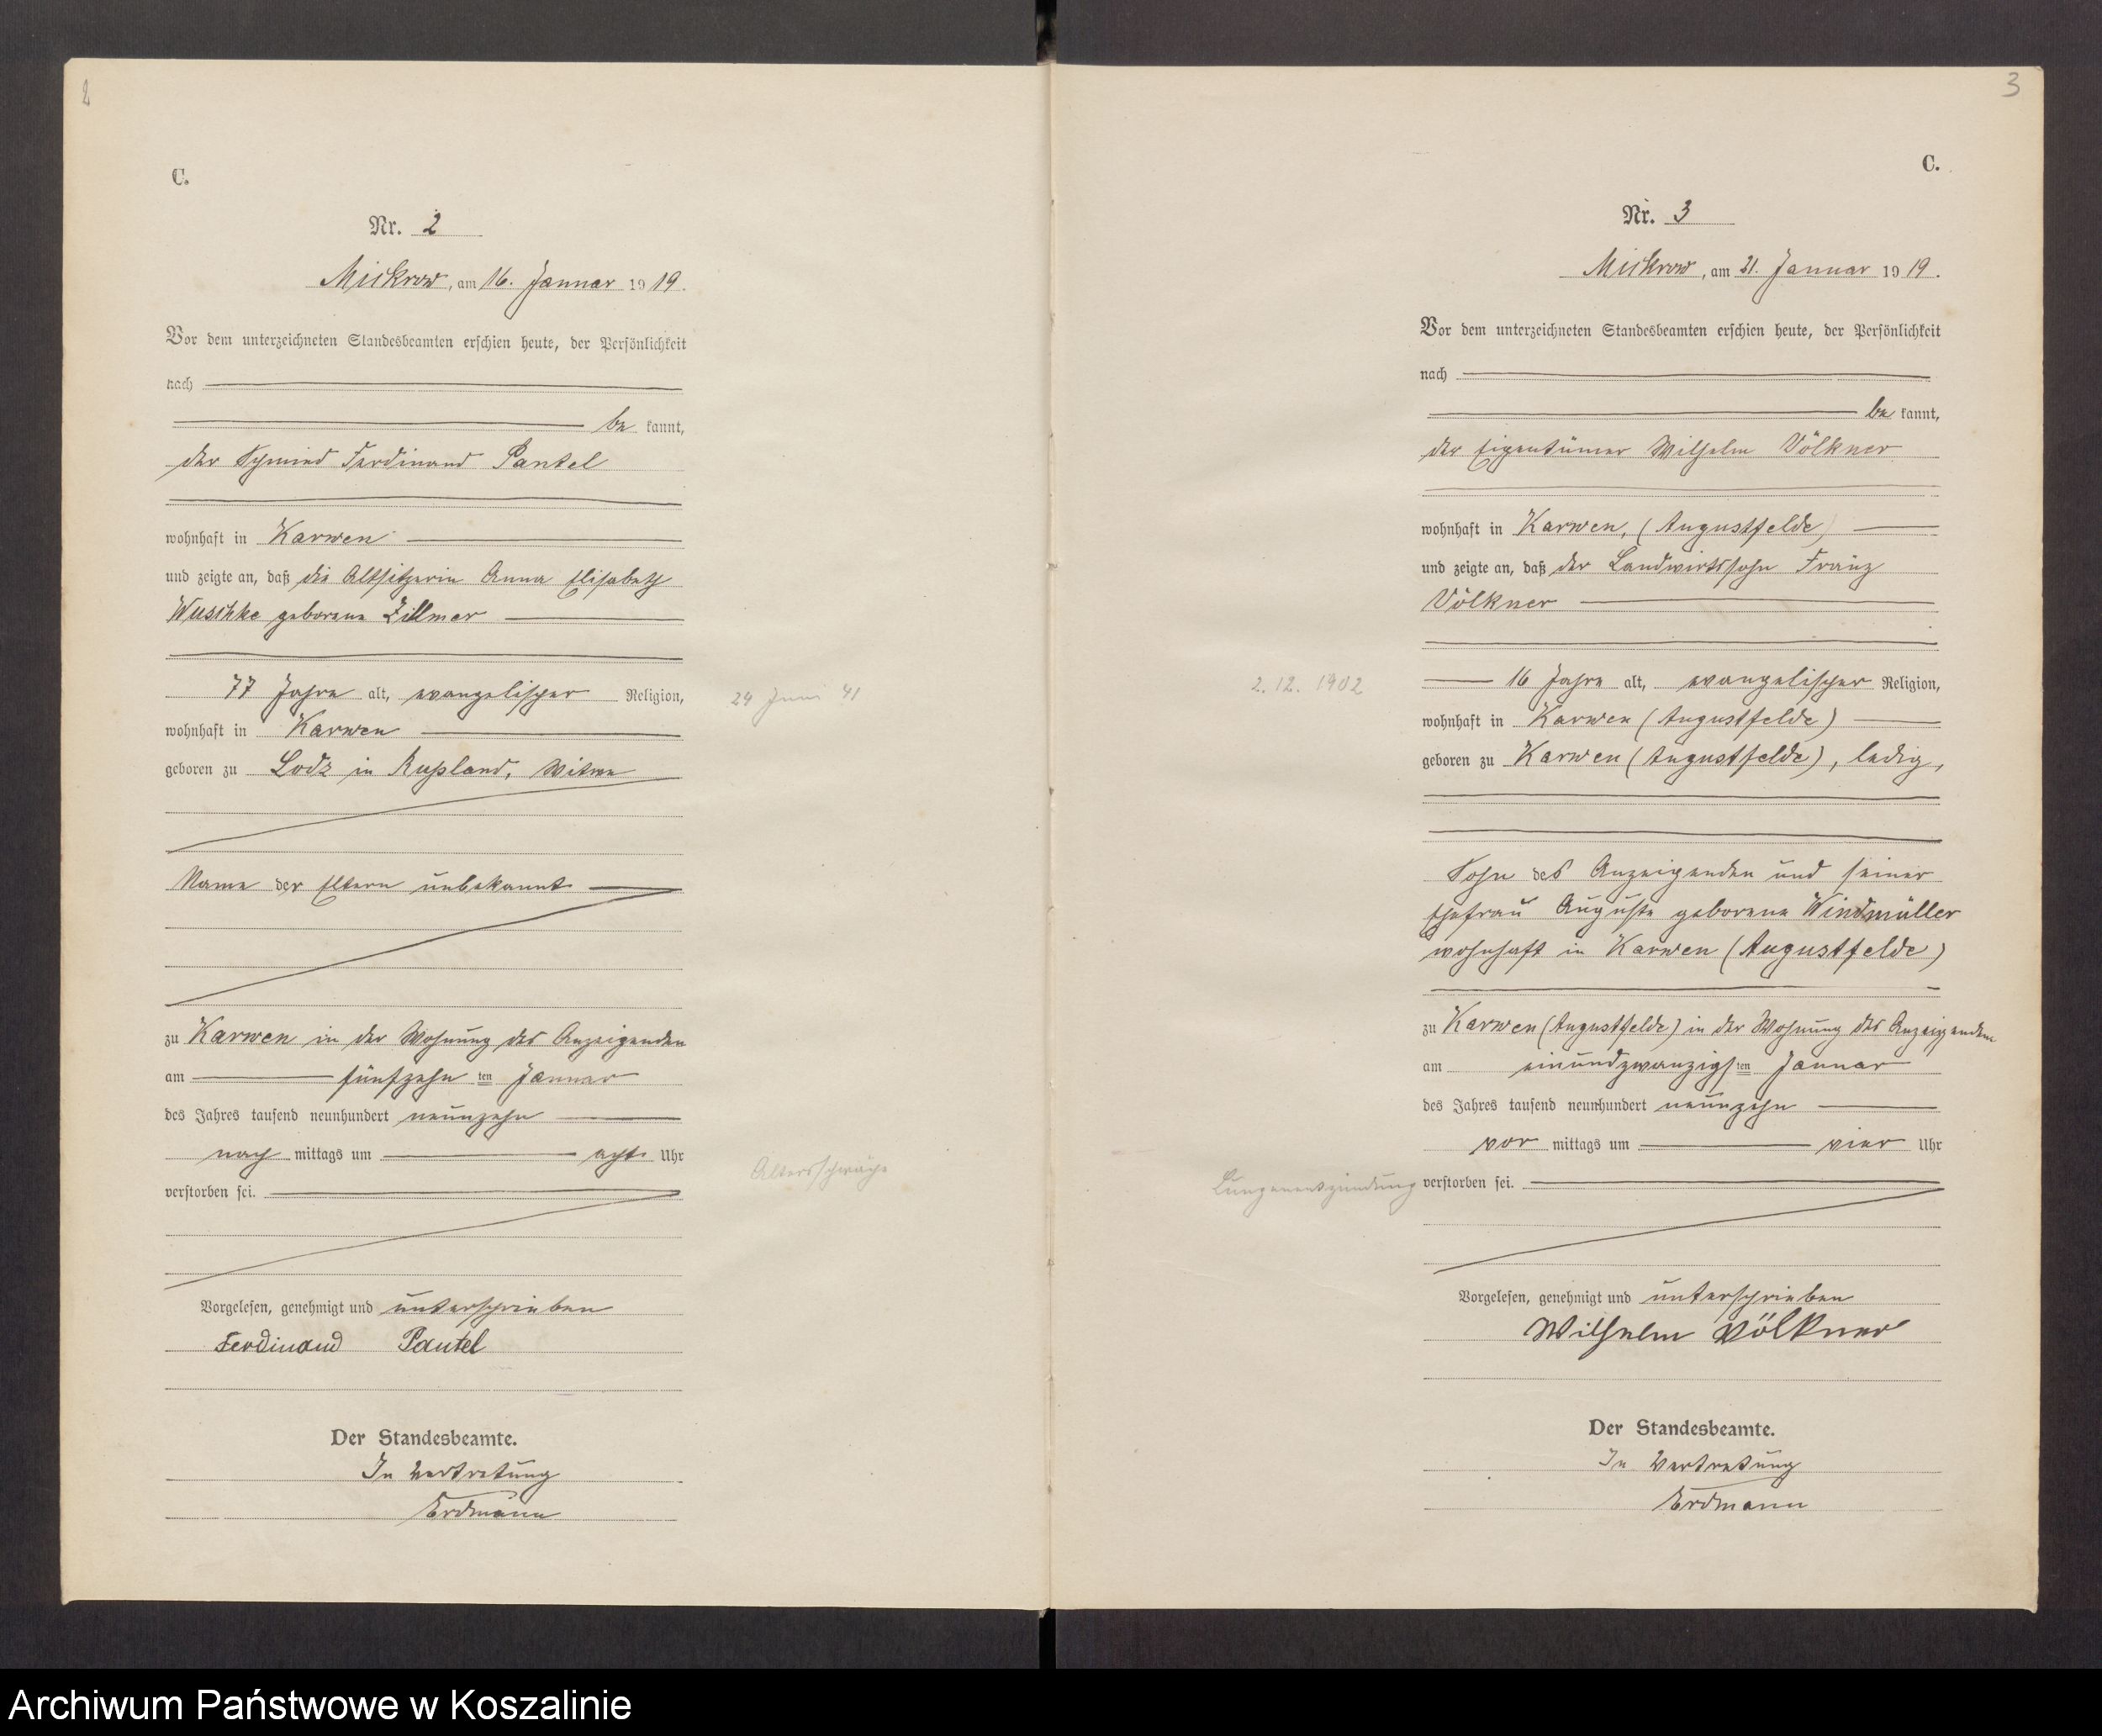 2
C.
Nr. 2
Mickrow, am 16. Januar 1919.
Vor dem unterzeichneten Standesbeamten erschien heute, der Persönlichkeit
nach
be kannt,
der Schmied Ferdinand Pantel
wohnhaft in Karwen
und zeigte an, daß die Altsitzerin Anna Elisabeth
Wuschke geborene Zillmer
77 Jahre alt, evangelischer Religion,
24 Juni 41
wohnhaft in Karwen
geboren zu Lodz in Rußland, Witwe
Name der Eltern unbekannt
zu Karwen in der Wohnung des Anzeigenden
am fünfzehn ten Januar
des Jahres tausend neunhundert neunzehn
nach mittags um acht Uhr
Altersschwäche
verstorben sei.
Vorgelesen, genehmigt und unterschrieben
Ferdinand Pantel
Der Standesbeamte.
In Vertretung
Erdmann
3
C.
Nr. 3
Mickrow, am 21. Januar 1919.
Vor dem unterzeichneten Standesbeamten erschien heute, der Persönlichkeit
nach
be kannt,
der Eigentümer Wilhelm Völkner
wohnhaft in Karwen, (Augustfelde)
und zeigte an, daß der Landwirtssohn Franz
Völkner
2.12. 1902
16 Jahre alt, evangelischer Religion,
wohnhaft in Karwen (Augustfelde)
geboren zu Karwen (Augustfelde), ledig,
Sohn des Anzeigenden und seiner
Ehefrau Auguste geborene Windmüller
wohnhaft in Karwen (Augustfelde)
zu Karwen (Augustfelde) in der Wohnung des Anzeigenden
am einundzwanzigs ten Januar
des Jahres tausend neunhundert neunzehn
vor mittags um vier Uhr
Lungenentzündung verstorben sei.
Vorgelesen, genehmigt und unterschrieben
Wilhelm Völkner
Der Standesbeamte.
In Vertretung
Erdmann
Archiwum Państwowe w Koszalinie